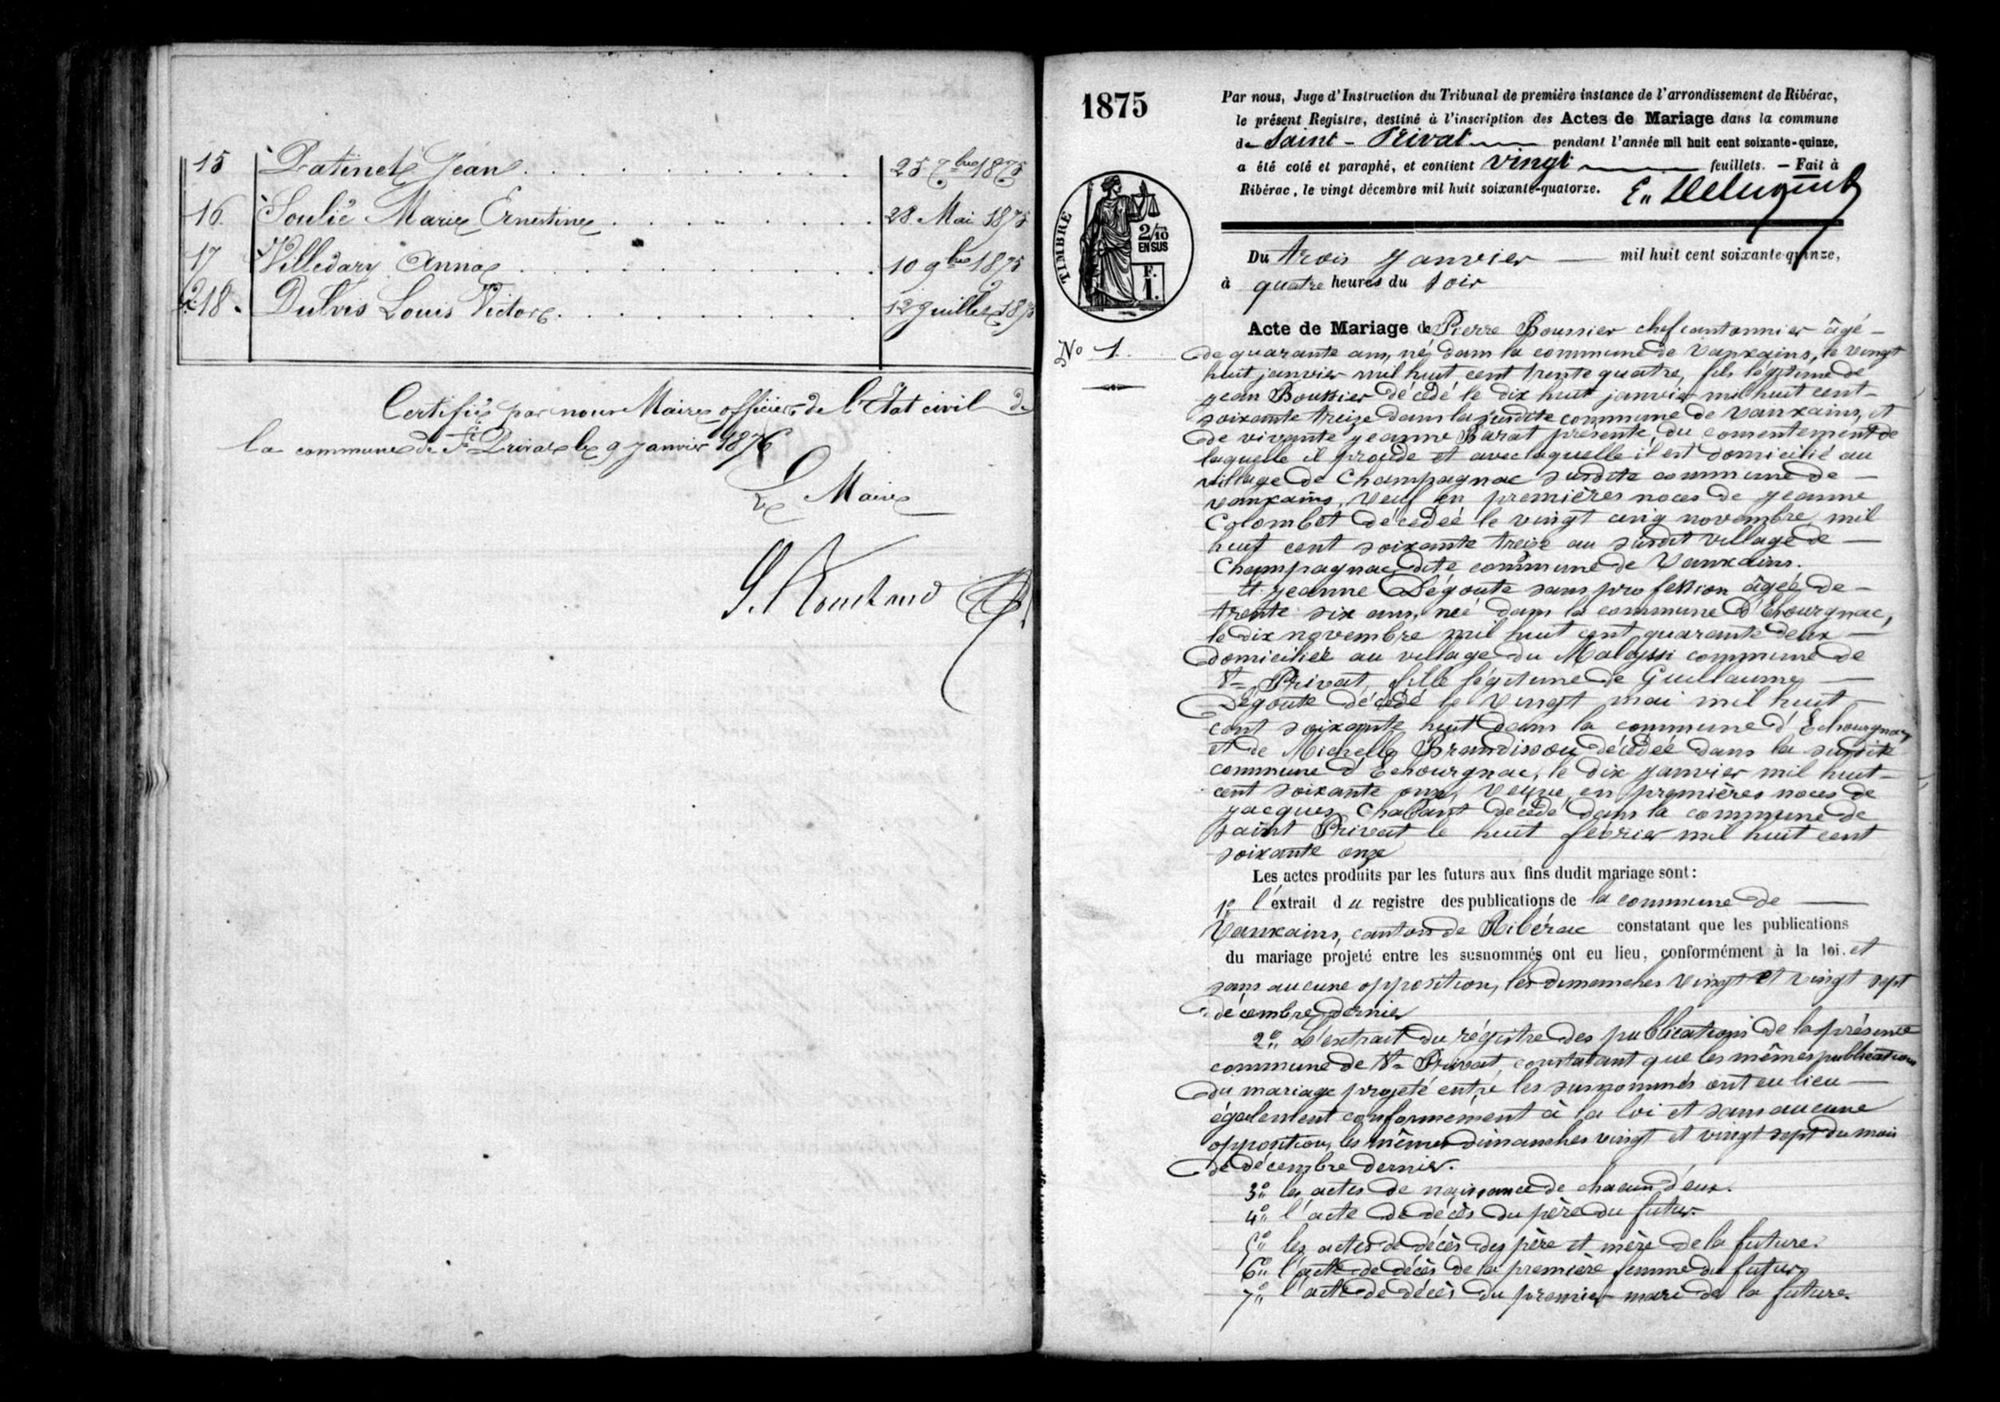 15 Patinet Jean 25 7bre 1875
16 Soulié Marie Ernestine 28 Mai 1875
17 Villedary Anna 10 9bre 1875
18 Louis Victor 12 Juillet 1875
Certifié par nous Maire officier de l'État civil de
la commune de St Privat le 9 janvier 1876
Le Maire
1875
Par nous, Juge d'Instruction du Tribunal de première instance de l'arrondissement de Ribérac,
le présent Registre, destiné à l'inscription des Actes de Mariage dans la commune
de Saint-Privat pendant l'année mil huit cent soixante-quinze,
a été coté et paraphé, et contient vingt feuillets. — Fait à
Ribérac, le vingt décembre mil huit soixante-quatorze.
TIMBRE
2/10
EN SUS
F.
1.
Du trois janvier mil huit cent soixante-quinze,
à quatre heures du soir
No 1.
Acte de Mariage de Pierre Boussier chef cantonnier âgé
de quarante ans, né dans la commune de Vanxains, le vingt
huit janvier mil huit cent trente quatre, fils légitime de
Jean Boussier décédé le dix huit janvier mil huit cent
soixante treize dans la susdite commune de Vanxains, et
de vivante Jeanne Barat présente, du consentement de
laquelle il procède et avec laquelle il est domicilié au
village de Champagnac susdite commune de
Vanxains, veuf en premières noces de Jeanne
Colombet décédée le vingt cinq novembre mil
huit cent soixante treize au susdit village de
Champagnac dite commune de Vanxains.
Et Jeanne Dégoute sans profession âgée de
trente six ans, née dans la commune d'Echourgnac,
le dix novembre mil huit cent quarante deux
domiciliée au village du commune de
St Privat, fille légitime de Guillaume
Dégoute décédé le vingt mai mil huit
cent soixante huit dans la commune d'Echourgnac
et de Michelle décédée dans la susdite
commune d'Echourgnac, le dix janvier mil huit
cent soixante onze, veuve en premières noces de
Jacques Chabant décédé dans la commune de
Saint Privat le huit février mil huit cent
soixante onze
Les actes produits par les futurs aux fins dudit mariage sont :
1o l'extrait du registre des publications de la commune de
Vanxains, canton de Ribérac constatant que les publications
du mariage projeté entre les susnommés ont eu lieu, conformément à la loi, et
sans aucune opposition, les dimanches vingt et vingt sept
décembre dernier
2o L'extrait du régistre des publications de la présente
commune de St Privat, constatant que les mêmes publications
du mariage projeté entre les susnommés ont eu lieu
également conformément à la loi et sans aucune
opposition, les mêmes dimanches vingt et vingt sept du mois
de décembre dernier.
3o les actes de naissance de chacun d'eux.
4o l'acte de décès du père du futur
5o les actes de décès des père et mère de la future.
6o l'acte de décès de la première femme du futur
7o l'acte de décès du premier mari de la future.